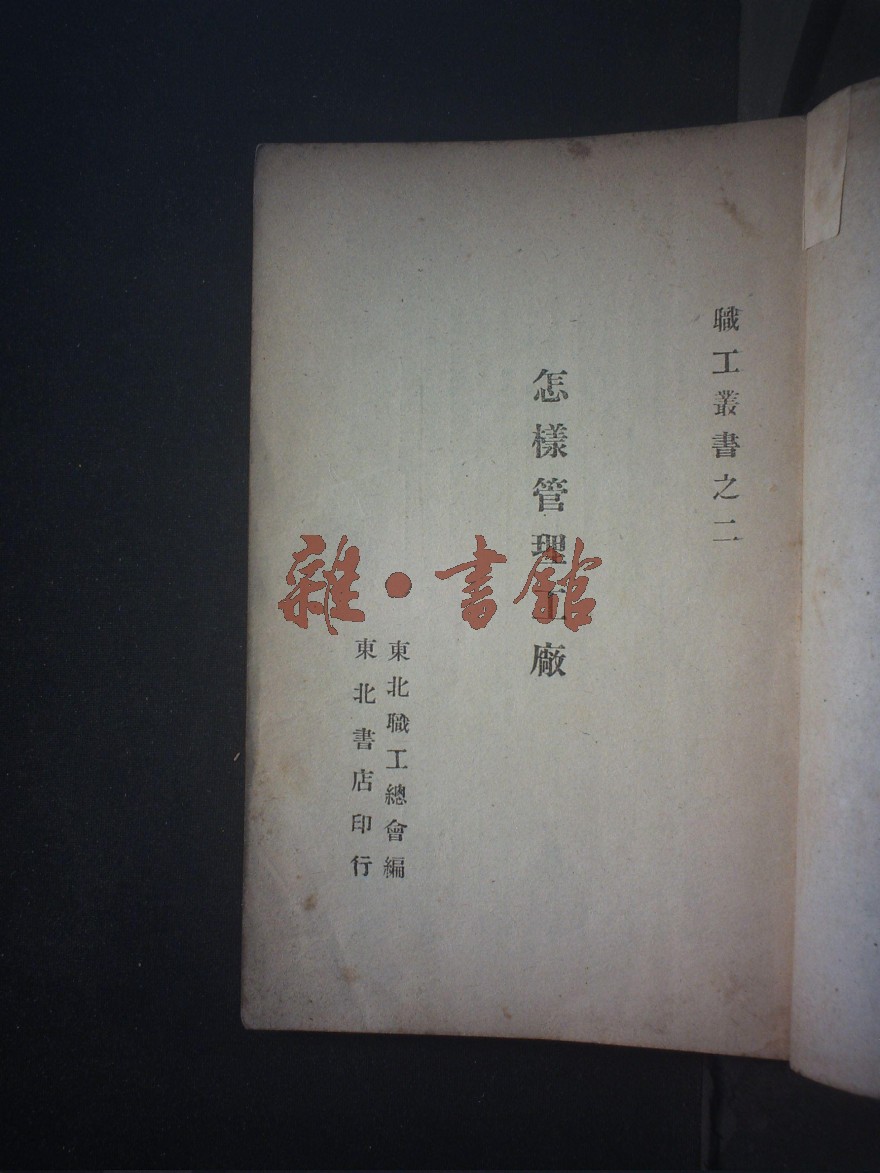 職工叢書之二
怎樣管理工廠
東北職工總會編
東北書店印行
雜·書館